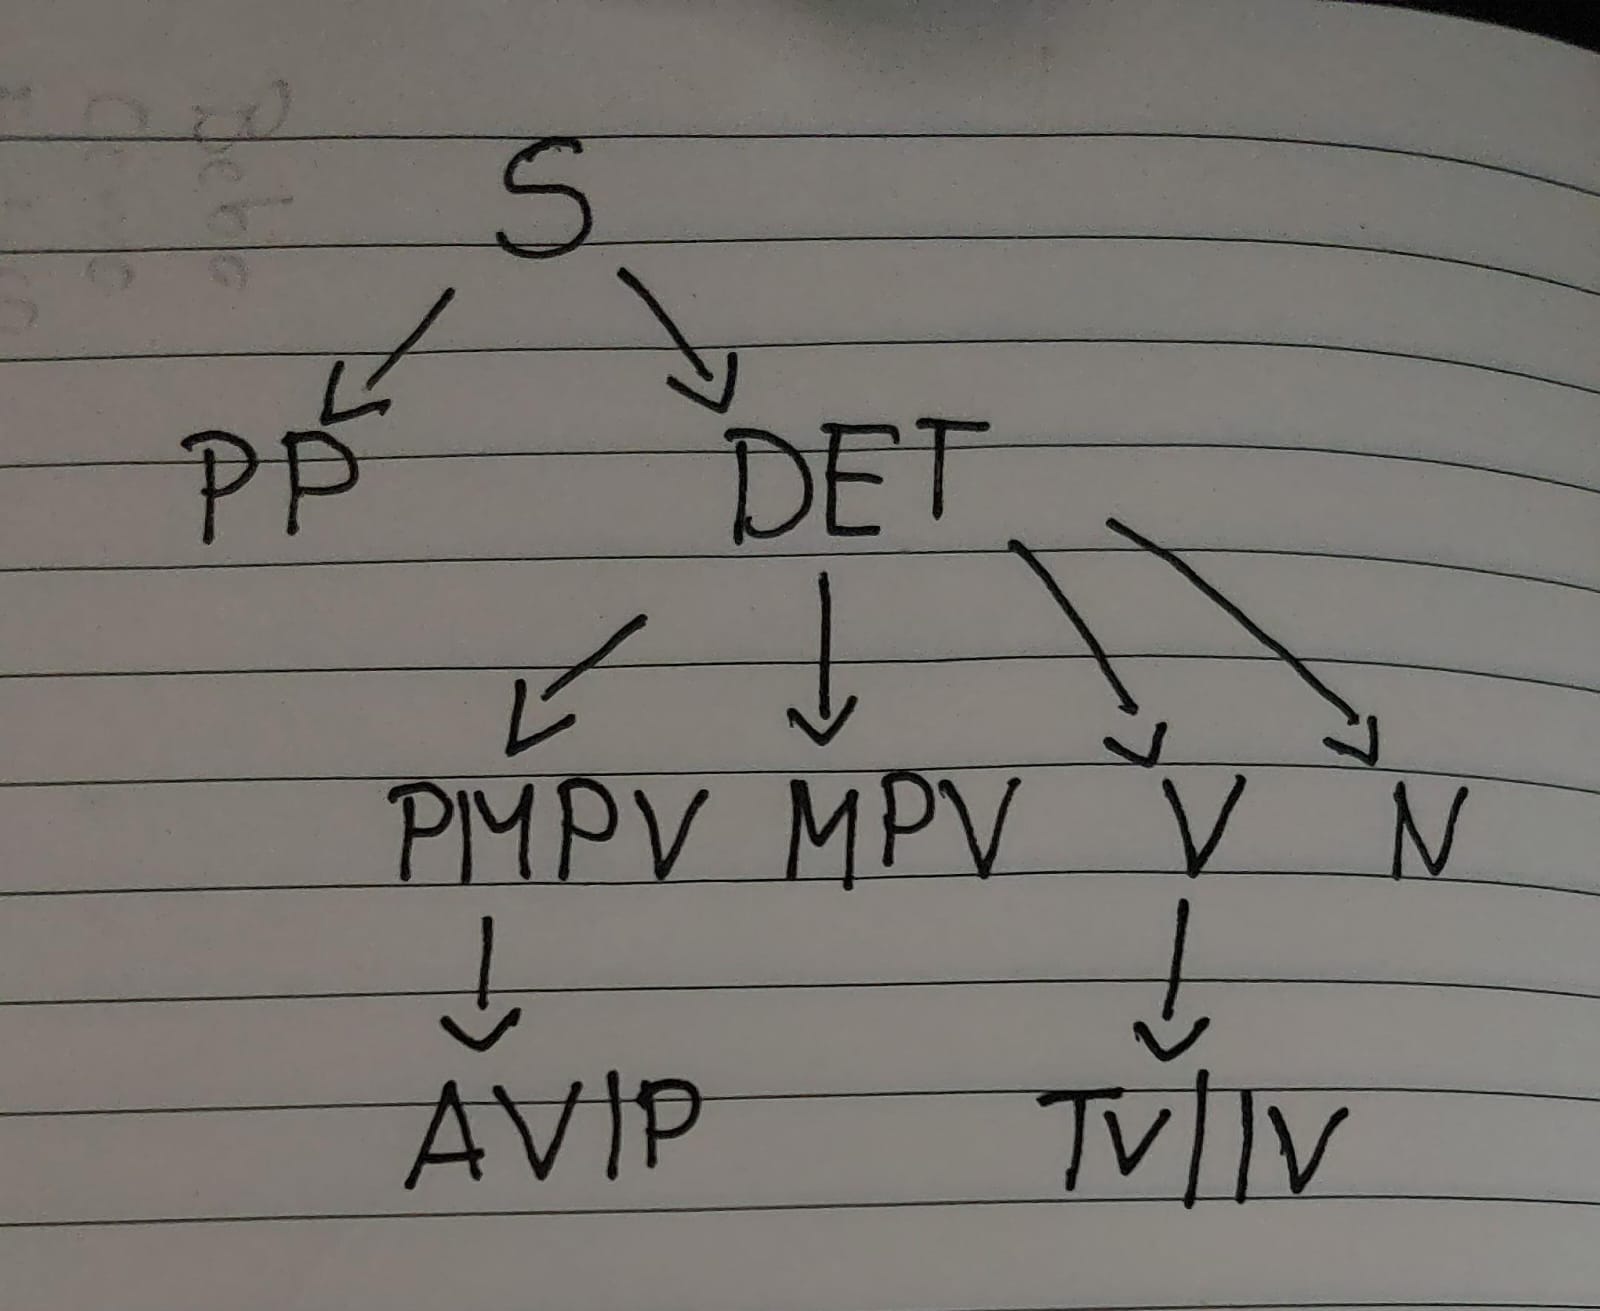 S
PP DET
PMPV MPV V N
AV|P TV|IV